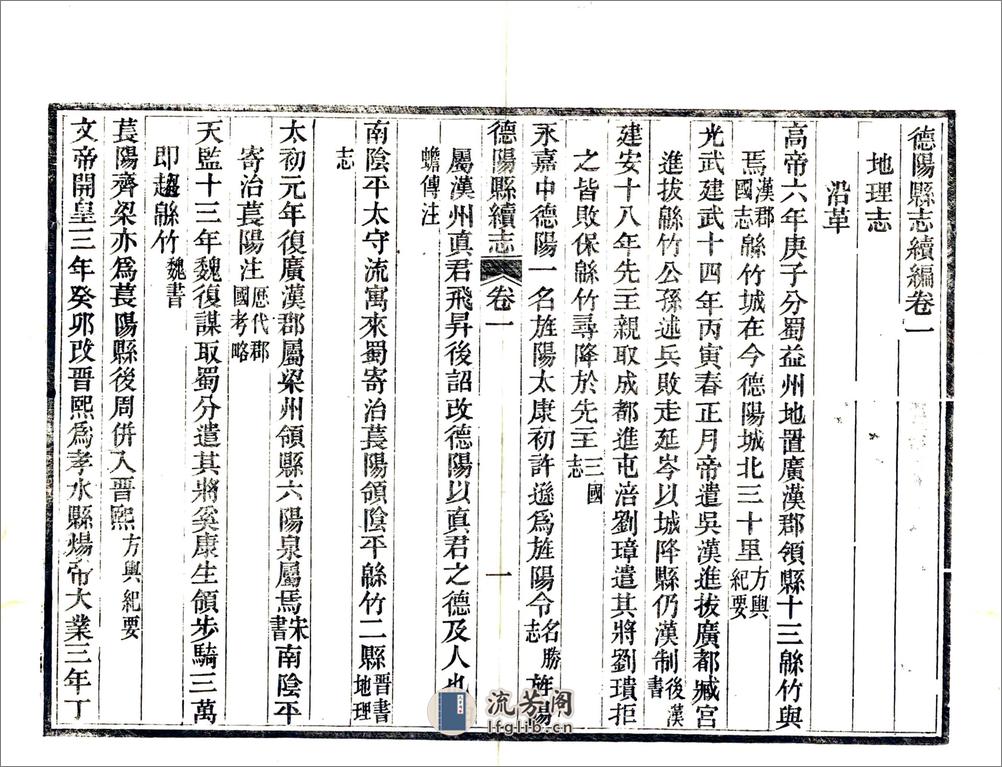 德陽縣志續編卷一
地理志
沿革
高帝六年庚子分蜀益州地置廣漢郡領縣十三緜竹與
焉漢郡國志緜竹城在今德陽城北三十里方輿紀要
光武建武十四年丙寅春正月帝遣吳漢進拔廣都臧宮
進拔緜竹公孫述兵敗走延岑以城降縣仍漢制後漢書
建安十八年先主親取成都進屯涪劉璋遣其將劉璝拒
之皆敗保緜竹尋降於先主三國志
永嘉中德陽一名旌陽太康初許遜爲旌陽令名勝志旌陽
德陽縣續志 卷一 一
屬漢州真君飛昇後詔改德陽以真君之德及人也
蟾傳注
南陰平太守流寓來蜀寄治萇陽領陰平緜竹二縣晉書地理
志
太初元年復廣漢郡屬梁州領縣六陽泉屬焉宋書南陰平
寄治萇陽注歷代郡國考略
天監十三年魏復謀取蜀分遣其將奚康生領步騎三萬
即趨緜竹魏書
萇陽齊梁亦爲萇陽縣後周併入晉熙方輿紀要
文帝開皇三年癸卯改晉熙爲孝水縣煬帝大業三年丁
流芳阁
lfglib.cn